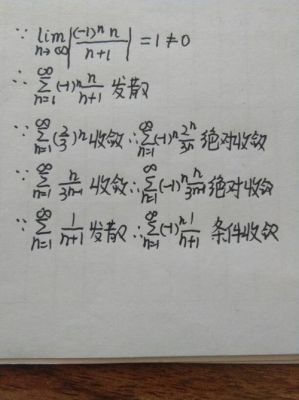 ∵ lim n→∞ |(-1)^n n / n+1| = 1 ≠ 0
∴ ∑_{n=1}^{∞} (-1)^n n/n+1 发散
∵ ∑_{n=1}^{∞} (2/3)^n 收敛 ∴ ∑_{n=1}^{∞} (-1)^n 2^n/3^n 绝对收敛
∵ ∑_{n=1}^{∞} n/3^{n-1} 收敛 ∴ ∑_{n=1}^{∞} (-1)^n n/3^{n-1} 绝对收敛
∵ ∑_{n=1}^{∞} 1/n+1 发散 ∴ ∑_{n=1}^{∞} (-1)^n 1/n+1 条件收敛